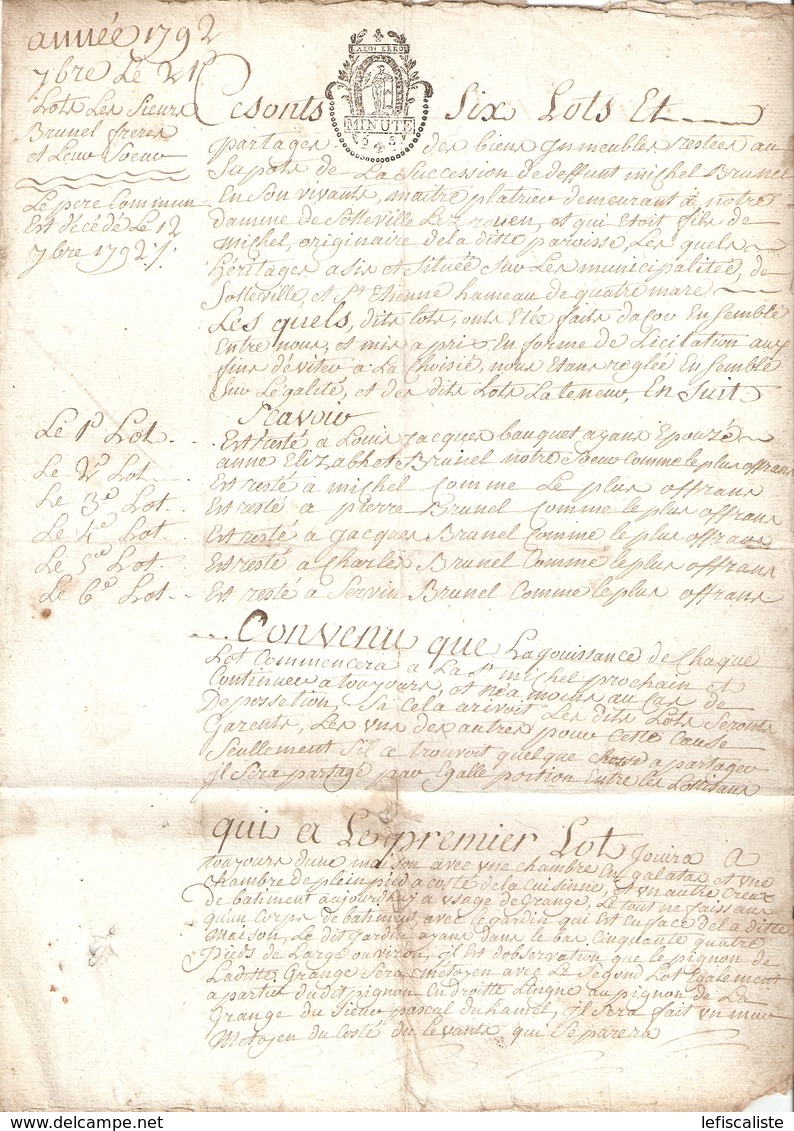 année 1792
7bre Le 21
Lots Les Sieurs
Brunel freres
et Leur Soeur
Le pere Commun
Est décédé Le 12
7bre 1792 /.
LA LOI LE ROI
MINUTE
Cesonts Six Lots Et
partages des biens ynmeubles restees au
Supots de La Succession de deffunt michel Brunel
En Son vivants, maitre platrier demeurant à notre
Damme de Sotteville Lez rouen, et qui Etoit fils de
michel, originaire dela ditte paroisse, Les quels
héritages asis et Située Sur Les municipalitée, de
Sotteville, et St Etienne hameau de quatre mare
Les quels, dits lots, onts Etée faits dacor Ensemble
Entre nous, et mis a prix En forme de Licitation aux
fins déviter à La Choisie, nous Etans réglée Ensemble
Sur Légalité, et des dits Lots La teneur, En Suit
Scavoir
Le 1er Lot Est resté à Louis Jacques bauquet ayans Epouzé
anne Elizabhet Brunel notre Soeur Comme le plus offrans
Le 2e Lot Est resté à michel Comme Le plus offrans
Le 3e Lot Est resté à pierre Brunel Comme le plus offrans
Le 4e Lot Est resté a jacques Brunel Comme le plus offrans
Le 5e Lot Est resté a Charles Brunel Comme le plus offrans
Le 6e Lot Est resté a Servin Brunel Comme le plus offrans
Convenu que La jouissance de Chaque
Lot Commencera a La St michel prochain et
Continuer a toujours, et néa moins au Cas de
Depossetion, Si Cela arivoit Les dits Lots Seronts
Garents, Les uns des autres pour Cette Cause
Seullement Sil ce trouvoit quelque chosse a partager
jl Sera partagé par Egalle portion Entre les Lottisans
qui a Le premier Lot Jouira A
toujours dune maison avec une chambre En galatas et une
Chambre de plein pied a costé de la Cuisinne, et un autre Creux
de batiment aujourdhuj a usage de Grange, Le tout ne faissans
quun Corps de batiment, avec le gardin qui Est En face de la ditte
Maison, Le dit Jardin ayans dans le bas Cinquante quatre
Pieds de Large ou viron, jl Est dobservation que le pignon de
Laditte Grange Sera metoyen avec Le Segond Lot Egalement
a partir du dit pignon En droitte Lingne au pignon de La
Grange du Sieur pascal duhamel, jl Sera fait un mur
Metoyen du Costé du levants, qui Separera
delcampe.net
lefiscaliste